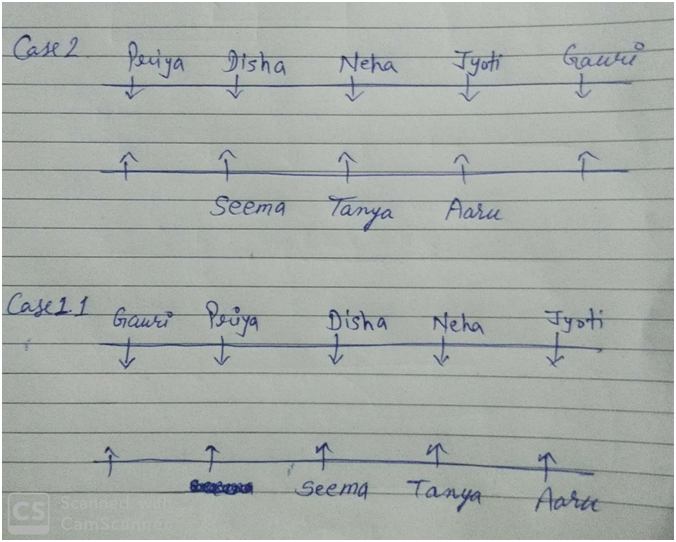 Case 2 Priya Disha Neha Jyoti Gauri
Seema Tanya Aaru
Case 1.1 Gauri Priya Disha Neha Jyoti
Seema Tanya Aaru
CS Scanned
CamScanner